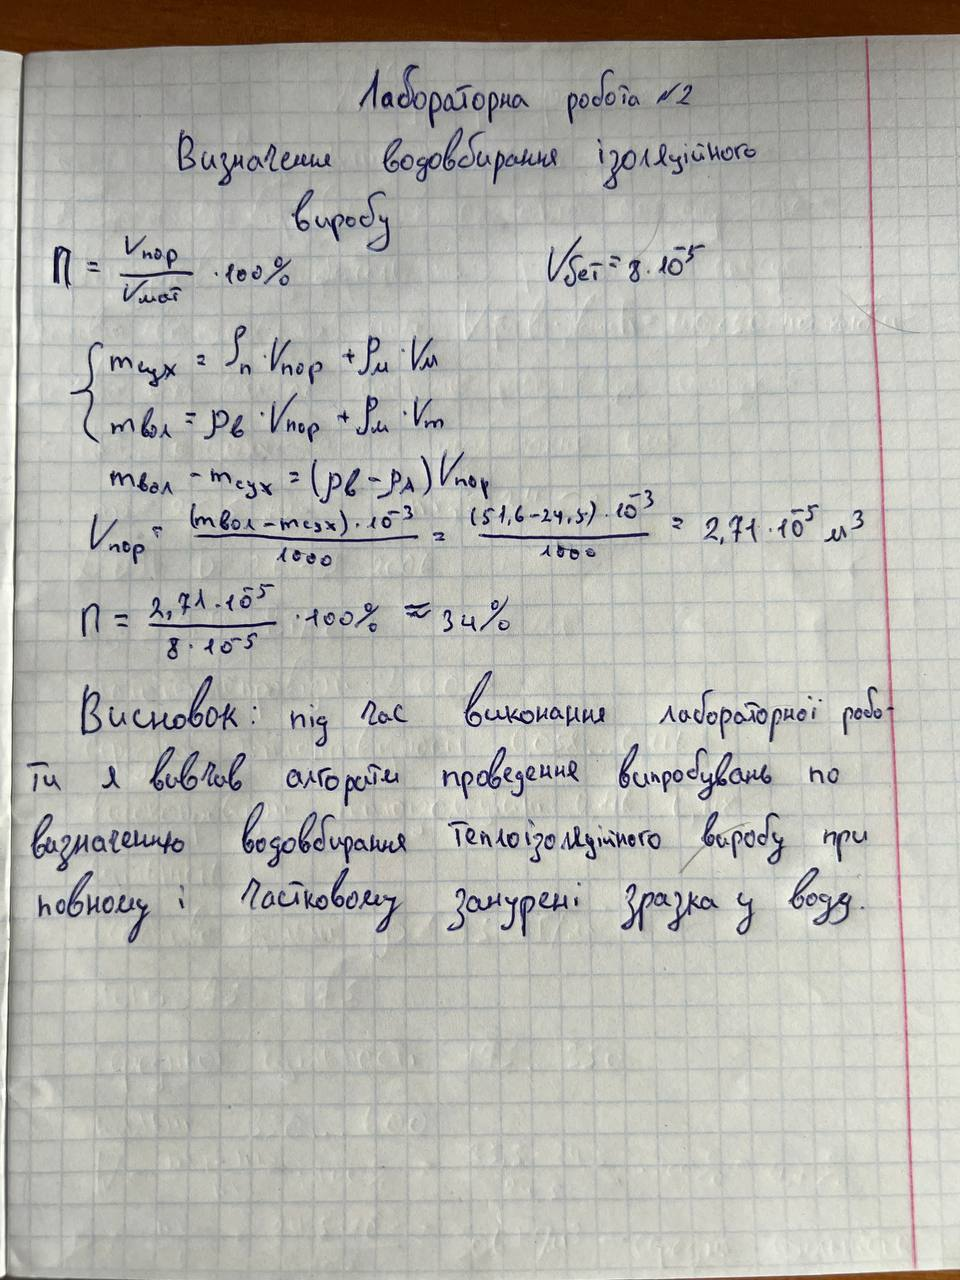 Лабораторна робота №2
Визначення водовбирання ізоляційного
виробу
П = Vпор / Vмат · 100%    Vбет = 8 · 10⁻⁵
{ mсух = ρп · Vпор + ρм · Vм
mвол = ρв · Vпор + ρм · Vm
mвол - mсух = (ρв - ρл) Vпор
Vпор = (mвол - mсух) · 10⁻³ / 1000 = (51,6 - 24,5) · 10⁻³ / 1000 = 2,71 · 10⁻⁵ м³
П = 2,71 · 10⁻⁵ / 8 · 10⁻⁵ · 100% ≈ 34%
Висновок: під час виконання лабораторної робо-
ти я вивчив алгоритм проведення випробувань по
визначенню водовбирання теплоізоляційного виробу при
повному і частковому занурені зразка у воду.